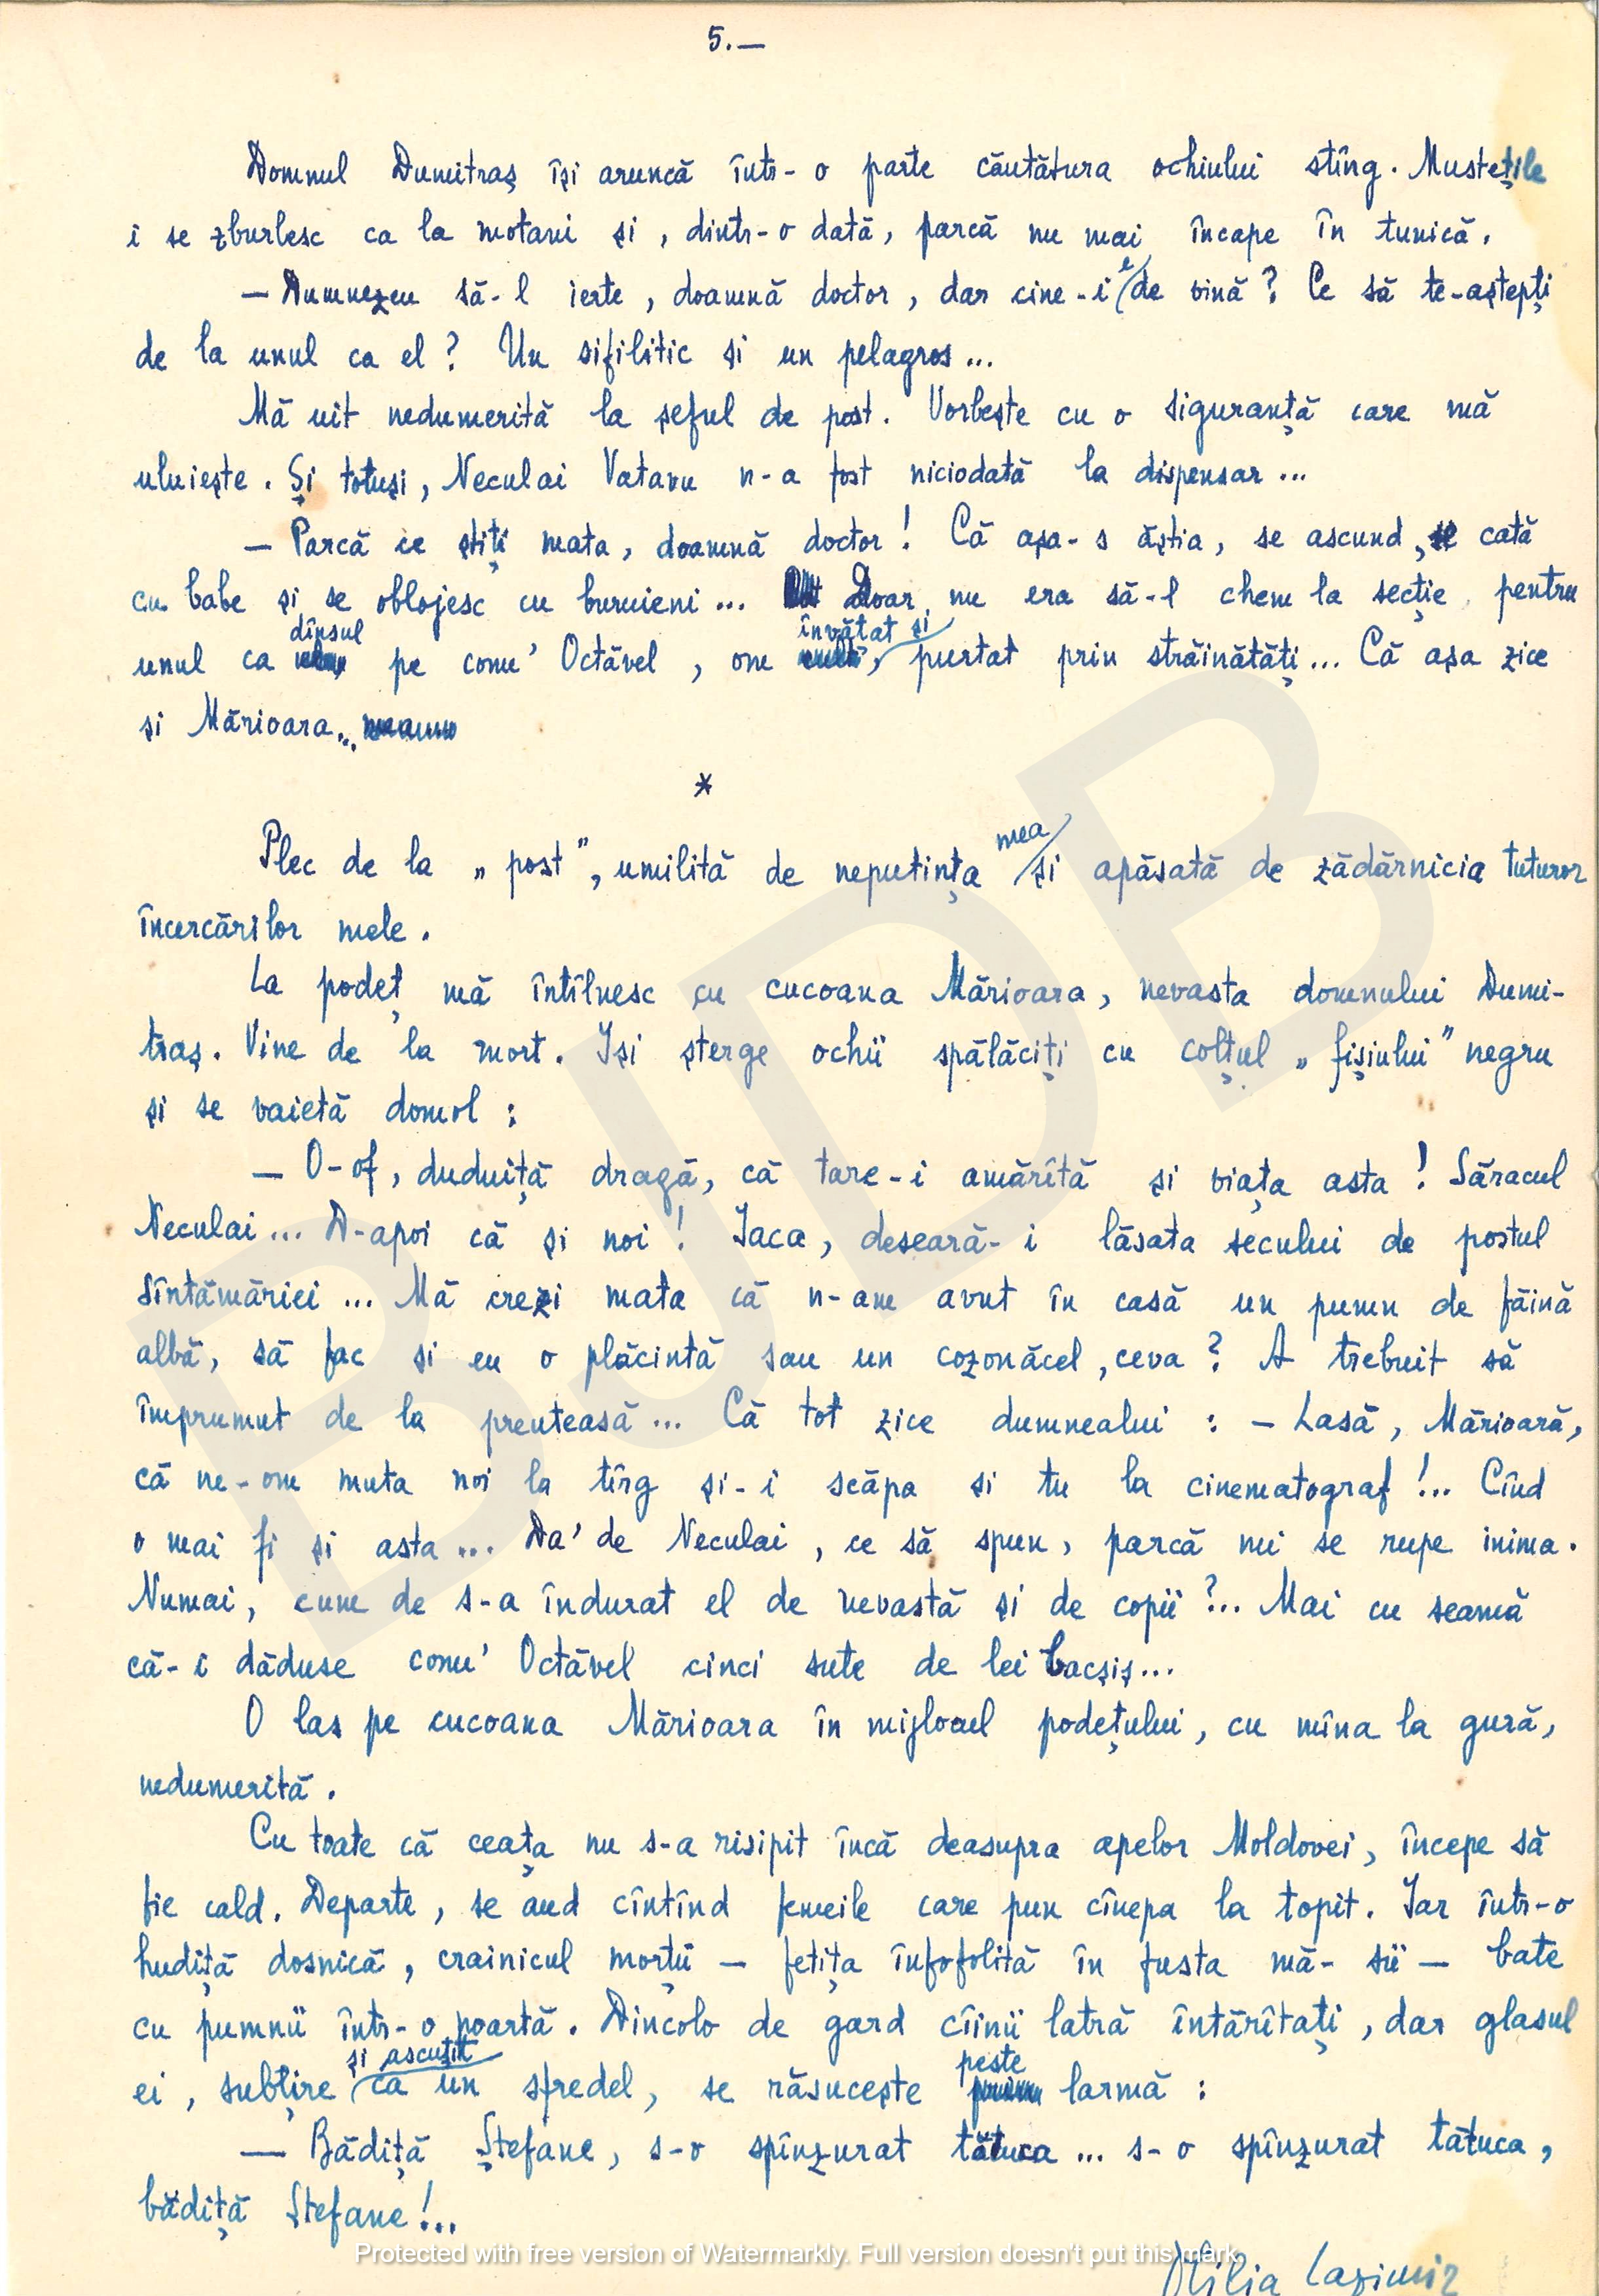 5.—
Domnul Dumitraș își aruncă într-o parte căutătura ochiului stîng. Mustețile
i se zburlesc ca la motani și, dintr-o dată, parcă nu mai încape în tunică.
— Dumnezeu să-l ierte, doamnă doctor, dar cine-i e de vină? Ce să te-aștepți
de la unul ca el? Un sifilitic și un pelagros...
Mă uit nedumerită la șeful de post. Vorbește cu o siguranță care mă
uluiește. Și totuși, Neculai Vatavu n-a fost niciodată la dispensar...
— Parcă ce știți mata, doamnă doctor! Că așa-s ăștia, se ascund, se cată
cu babe și se oblojesc cu buruieni... Doar nu era să-l chem la secție, pentru
dînsul învățat și
unul ca pe conu' Octăvel, om purtat prin străinătăți... Că așa zice
și Mărioara...
*
mea
Plec de la „post”, umilită de neputința și apăsată de zădărnicia tuturor
încercărilor mele.
La podeț mă întîlnesc cu cucoana Mărioara, nevasta domnului Dumi-
traș. Vine de la mort. Își șterge ochii spălăciți cu colțul „fișiului” negru
și se vaietă domol:
— O-of, duduiță dragă, că tare-i amărîtă și viața asta! Săracul
Neculai... D-apoi că și noi! Iaca, deseară-i lăsata secului de postul
Sîntămăriei... Mă crezi mata că n-am avut în casă un pumn de făină
albă, să fac și eu o plăcintă sau un cozonăcel, ceva? A trebuit să
împrumut de la preuteasă... Că tot zice dumnealui: — Lasă, Mărioară,
că ne-om muta noi la tîrg și-i scăpa și tu la cinematograf!... Cînd
o mai fi și asta... Da' de Neculai, ce să spun, parcă mi se rupe inima.
Numai, cum de s-a îndurat el de nevastă și de copii?... Mai cu seamă
că-i dăduse conu' Octăvel cinci sute de lei bacșiș...
O las pe cucoana Mărioara în mijlocul podețului, cu mîna la gură,
nedumerită.
Cu toate că ceața nu s-a risipit încă deasupra apelor Moldovei, începe să
fie cald. Departe, se aud cîntînd femeile care pun cînepa la topit. Iar într-o
hudiță dosnică, crainicul morții — fetița înfofolită în fusta mă-sii — bate
cu pumnii într-o poartă. Dincolo de gard cîinii latră întărîtați, dar glasul
și ascuțit peste
ei, subțire ca un sfredel, se răsucește larmă:
— Bădiță Ștefane, s-o spînzurat tătuca... s-o spînzurat tătuca,
bădiță Ștefane!...
Otilia Cazimir
BJDB
Protected with free version of Watermarkly. Full version doesn't put this mark.